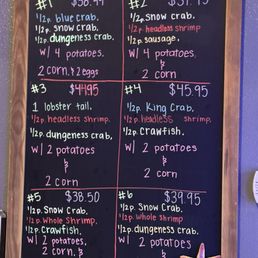 #1
1/2p. blue crab.
1/2p. Snow crab.
1/2p. dungeness crab
w/ 4 potatoes.
2 corn. & 2 eggs
#2
1/2p. Snow Crab.
1/2p. headless shrimp
1/2p. sausage.
w/ 4 potatoes
&
2 corn
#3 $44.95
1 lobster tail.
1/2p. headless shrimp.
1/2p. dungeness crab.
w/ 2 potatoes
&
2 corn
#4 $45.95
1/2p. King Crab.
1/2p. headless shrimp.
1/2p. crawfish.
w/ 2 potatoes
&
2 corn
#5 $38.50
1/2p. Snow Crab.
1/2p. Whole Shrimp.
1/2p. Crawfish.
w/ 2 potatoes.
2 corn &
#6 $39.95
1/2p. Snow Crab.
1/2p. whole shrimp
1/2p. dungeness crab.
w/ 2 potatoes
&